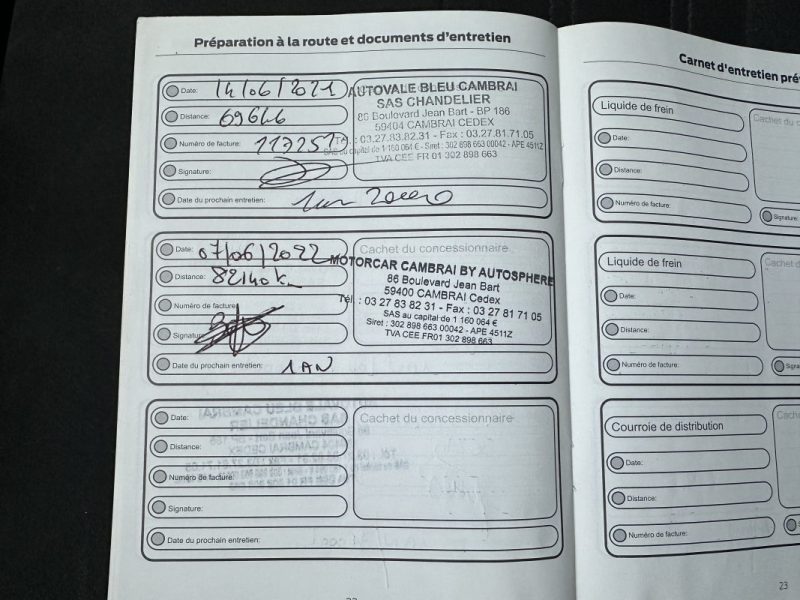 Préparation à la route et documents d'entretien
Date: 14/06/2021
Distance: 69646
Numéro de facture: 117251
Signature:
Date du prochain entretien: 1an 20000
AUTOVALE BLEU CAMBRAI
SAS CHANDELIER
86 Boulevard Jean Bart - BP 186
59404 CAMBRAI CEDEX
Tél. : 03.27.83.82.31 - Fax : 03.27.81.71.05
SAS au capital de 1 160 064 € - Siret : 302 898 663 00042 - APE 4511Z
TVA CEE FR 01 302 898 663
Date: 07/06/2022
Distance: 82140 k
Numéro de facture:
Signature:
Date du prochain entretien: 1 AN
Cachet du concessionnaire
MOTORCAR CAMBRAI BY AUTOSPHERE
86 Boulevard Jean Bart
59400 CAMBRAI Cedex
Tél. : 03 27 83 82 31 - Fax : 03 27 81 71 05
SAS au capital de 1 160 064 €
Siret : 302 898 663 00042 - APE 4511Z
TVA CEE FR01 302 898 663
Date:
Distance:
Numéro de facture:
Signature:
Date du prochain entretien:
Cachet du concessionnaire
Carnet d'entretien
Liquide de frein
Date:
Distance:
Numéro de facture:
Cachet
Signature:
Liquide de frein
Date:
Distance:
Numéro de facture:
Cachet d
Signa
Courroie de distribution
Date:
Distance:
Numéro de facture:
23